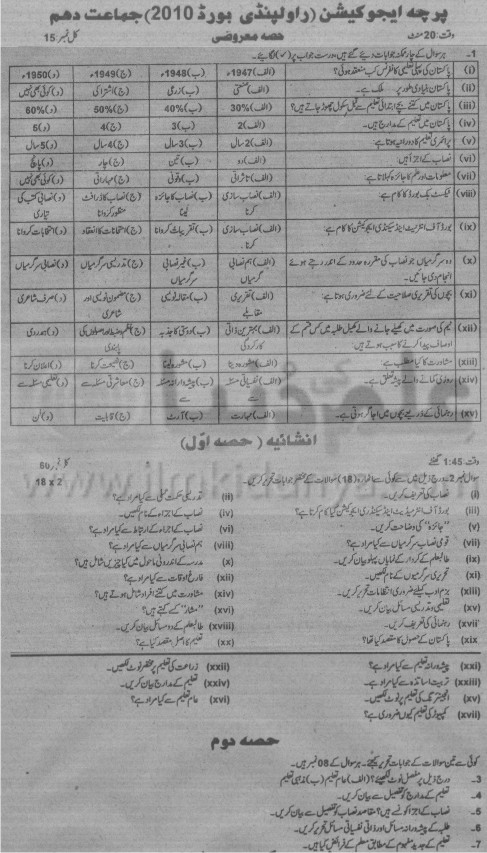 پرچہ ایجوکیشن (راولپنڈی بورڈ 2010) جماعت دہم
وقت: 20 منٹ حصہ معروضی کل نمبر 15
1- ہر سوال کے چار ممکنہ جوابات دیئے گئے ہیں درست جواب پر (✓) لگائیے۔
(i) پاکستان کی پہلی تعلیمی کانفرنس کب منعقد ہوئی؟ (الف) 1947ء (ب) 1948ء (ج) 1949ء (د) 1950ء
(ii) پاکستان بنیادی طور پر ملک ہے۔ (الف) صنعتی (ب) زرعی (ج) اشتراکی (د) کوئی بھی نہیں
(iii) پاکستان میں کتنے بچے ابتدائی تعلیم سے قبل سکول چھوڑ جاتے ہیں؟ (الف) 30% (ب) 40% (ج) 50% (د) 60%
(iv) پاکستان میں تعلیم کے مدارج ہیں۔ (الف) 2 (ب) 3 (ج) 4 (د) 5
(v) پرائمری تعلیم کا دورانیہ ہوتا ہے: (الف) 2 سال (ب) 3 سال (ج) 4 سال (د) 5 سال
(vi) نصاب کے اجزا ہیں: (الف) دو (ب) تین (ج) چار (د) پانچ
(vii) معلومات اور علم کا جائزہ کہلاتا ہے: (الف) تاثراتی (ب) وقوفی (ج) مہاراتی (د) کوئی بھی نہیں
(viii) ٹیکسٹ بک بورڈ کا کام ہے: (الف) نصاب سازی کرنا (ب) نصاب کا جائزہ لینا (ج) نصاب کا ڈرافٹ منظور کروانا (د) نصابی کتب کی تیاری
(ix) بورڈ آف انٹرمیڈیٹ اینڈ سیکنڈری ایجوکیشن کا کام ہے: (الف) نصاب سازی کرنا (ب) تقریبات کروانا (ج) امتحانات کا انعقاد (د) انتخابات کروانا
(x) وہ سرگرمیاں جو نصاب کی مقررہ حدود کے اندر رہتے ہوئے انجام دی جائیں۔ (الف) ہم نصابی سرگرمیاں (ب) غیر نصابی سرگرمیاں (ج) تدریسی سرگرمیاں (د) نصابی سرگرمیاں
(xi) بچوں کی تقریری صلاحیت کے لئے ضروری ہوتا ہے: (الف) تقریری مقابلے (ب) مقالہ نویسی (ج) مضمون نویسی اور شاعری (د) صرف شاعری
(xii) ٹیم کی صورت میں کھیلے جانے والے کھیل طلبہ میں کس قسم کے اوصاف پیدا کرنے کا سبب ہوتے ہیں: (الف) بہترین ذاتی کارکردگی (ب) دوستی کا جذبہ (ج) نظم و ضبط اور اصولوں کی پابندی (د) ہمدردی
(xiii) مشاورت کا کیا مطلب ہے: (الف) مشورہ دینا (ب) مشورہ لینا (ج) نصیحت کرنا (د) اعلان کرنا
(xiv) روزی کمانے والے پیشہ تعلق ہے۔ (الف) نفسیاتی مسئلہ سے (ب) پیشہ ورانہ مسئلہ سے (ج) معاشرتی مسئلہ سے (د) تعلیمی مسئلہ سے
(xv) رہنمائی کے ذریعے بچوں میں اجاگر ہوتی ہے۔ (الف) مہارت (ب) آرٹ (ج) قابلیت (د) فن
انشائیہ (حصہ اوّل)
وقت 1:45 گھنٹے کل نمبر 60
سوال نمبر 2- درج ذیل میں سے کوئی سے اٹھارہ (18) سوالات کے مختصر جوابات تحریر کریں۔ 18 x 2
(i) نصاب کی تعریف کریں۔ (ii) تدریسی حکمت عملی سے کیا مراد ہے؟
(iii) بورڈ آف انٹرمیڈیٹ اینڈ سیکنڈری ایجوکیشن کیا کام کرتا ہے؟ (iv) نصاب کے اجزاء کے نام لکھیں۔
(v) "جائزہ" کی وضاحت کریں۔ (vi) نصاب کے اجزاء کے ارتباط سے کیا مراد ہے؟
(vii) قومی نصاب سرگرمیاں سے کیا مراد ہے؟ (viii) ہم نصابی سرگرمیاں سے کیا مراد ہے؟
(ix) طالب علم کے کردار کے نمایاں پہلو بیان کریں۔ (x) مدرسہ کے اندرونی ماحول میں کیا چیزیں شامل ہیں؟
(xi) تحریری سرگرمیوں کے نام لکھیں۔ (xii) فارغ اوقات سے کیا مراد ہے؟
(xiii) بزم ادب کیلئے ضروری انتظامات تحریر کریں۔ (xiv) مشاورت میں کتنے افراد شامل ہوتے ہیں؟
(xv) تعلیمی و تدریسی مسائل بیان کریں۔ (xvi) "مشار" کسے کہتے ہیں؟
(xvii) رہنمائی کی تعریف کریں۔ (xviii) طالب علم کے دو مسائل بیان کریں۔
(xix) پاکستان کے حصول کا مقصد کیا تھا؟ (xx) تعلیم کا اصل مقصد کیا ہے؟
(xxi) پیشہ ورانہ تعلیم سے کیا مراد ہے؟ (xxii) زراعت کی تعلیم پر مختصر نوٹ لکھیں۔
(xxiii) تربیت اساتذہ سے کیا مراد ہے؟ (xxiv) تعلیم کے مدارج بیان کریں۔
(xvi) انجینئرنگ کی تعلیم پر نوٹ لکھیں۔ (xvi) عام تعلیم سے کیا مراد ہے؟
(xvii) کمپیوٹر کی تعلیم کیوں ضروری ہے؟
حصہ دوم
کوئی سے تین سوالات کے جوابات تحریر کیجئے۔ ہر سوال کے 08 نمبر ہیں۔
3- درج ذیل پر مفصل نوٹ لکھیئے؟ (الف) عام تعلیم (ب) مذہبی تعلیم
4- تعلیم کے مدارج کو تفصیل سے بیان کریں۔
5- نصاب کے اجزا کونسے ہیں؟ مقاصد نصاب کو تفصیل سے بیان کریں۔
6- طلبہ کے پیشہ ورانہ مسائل اور ذاتی نفسیاتی مسائل تحریر کریں۔
7- تعلیم کے جدید مفہوم کے مطابق معلم کے فرائض کیا ہیں۔
www.ilmkidunya.com